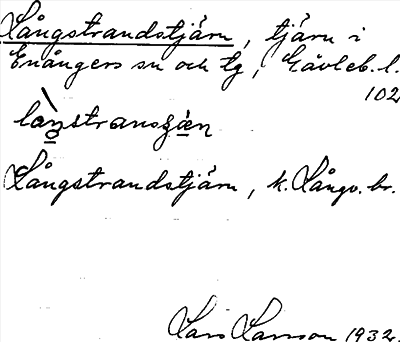 Långstrandstjärn, tjärn i
Enångers sn och tg, Gävleb. l.
102
Långstrandstjärn, k. Långv. br.
Lars Larsson 1932.